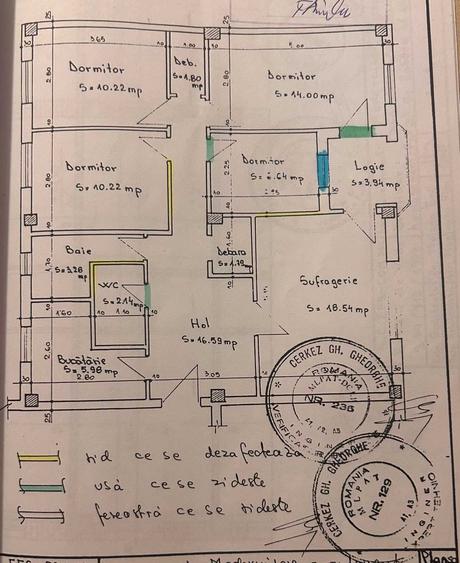 25
3.65
1.00
5.00
Dormitor
S = 10.22 mp
Deb.
S = 1.80 mp
Dormitor
S = 14.00 mp
2.80
2.80
Dormitor
S = 10.22 mp
Dormitor
2.25
Logie
S = 3,94 mp
Baie
S = 3.26 mp
WC
S = 2.14 mp
Debara
S = 1.79 mp
Sufragerie
S = 18.54 mp
Hol
S = 16.59 mp
Bucătărie
S = 5.98 mp
2.80
1.60
1.10
1.70
2.60
1.60
3.05
25
CERKEZ GH. GHEORGHE
ROMANIA
NR. 238
zid ce se dezafecteaza
usă ce se zideste
fereastră ce se zideste
CERKEZ GH. GHEORGHE
ROMANIA
MLPAT
NR. 129
INGINER
EXPERT TEHNIC
Plansa